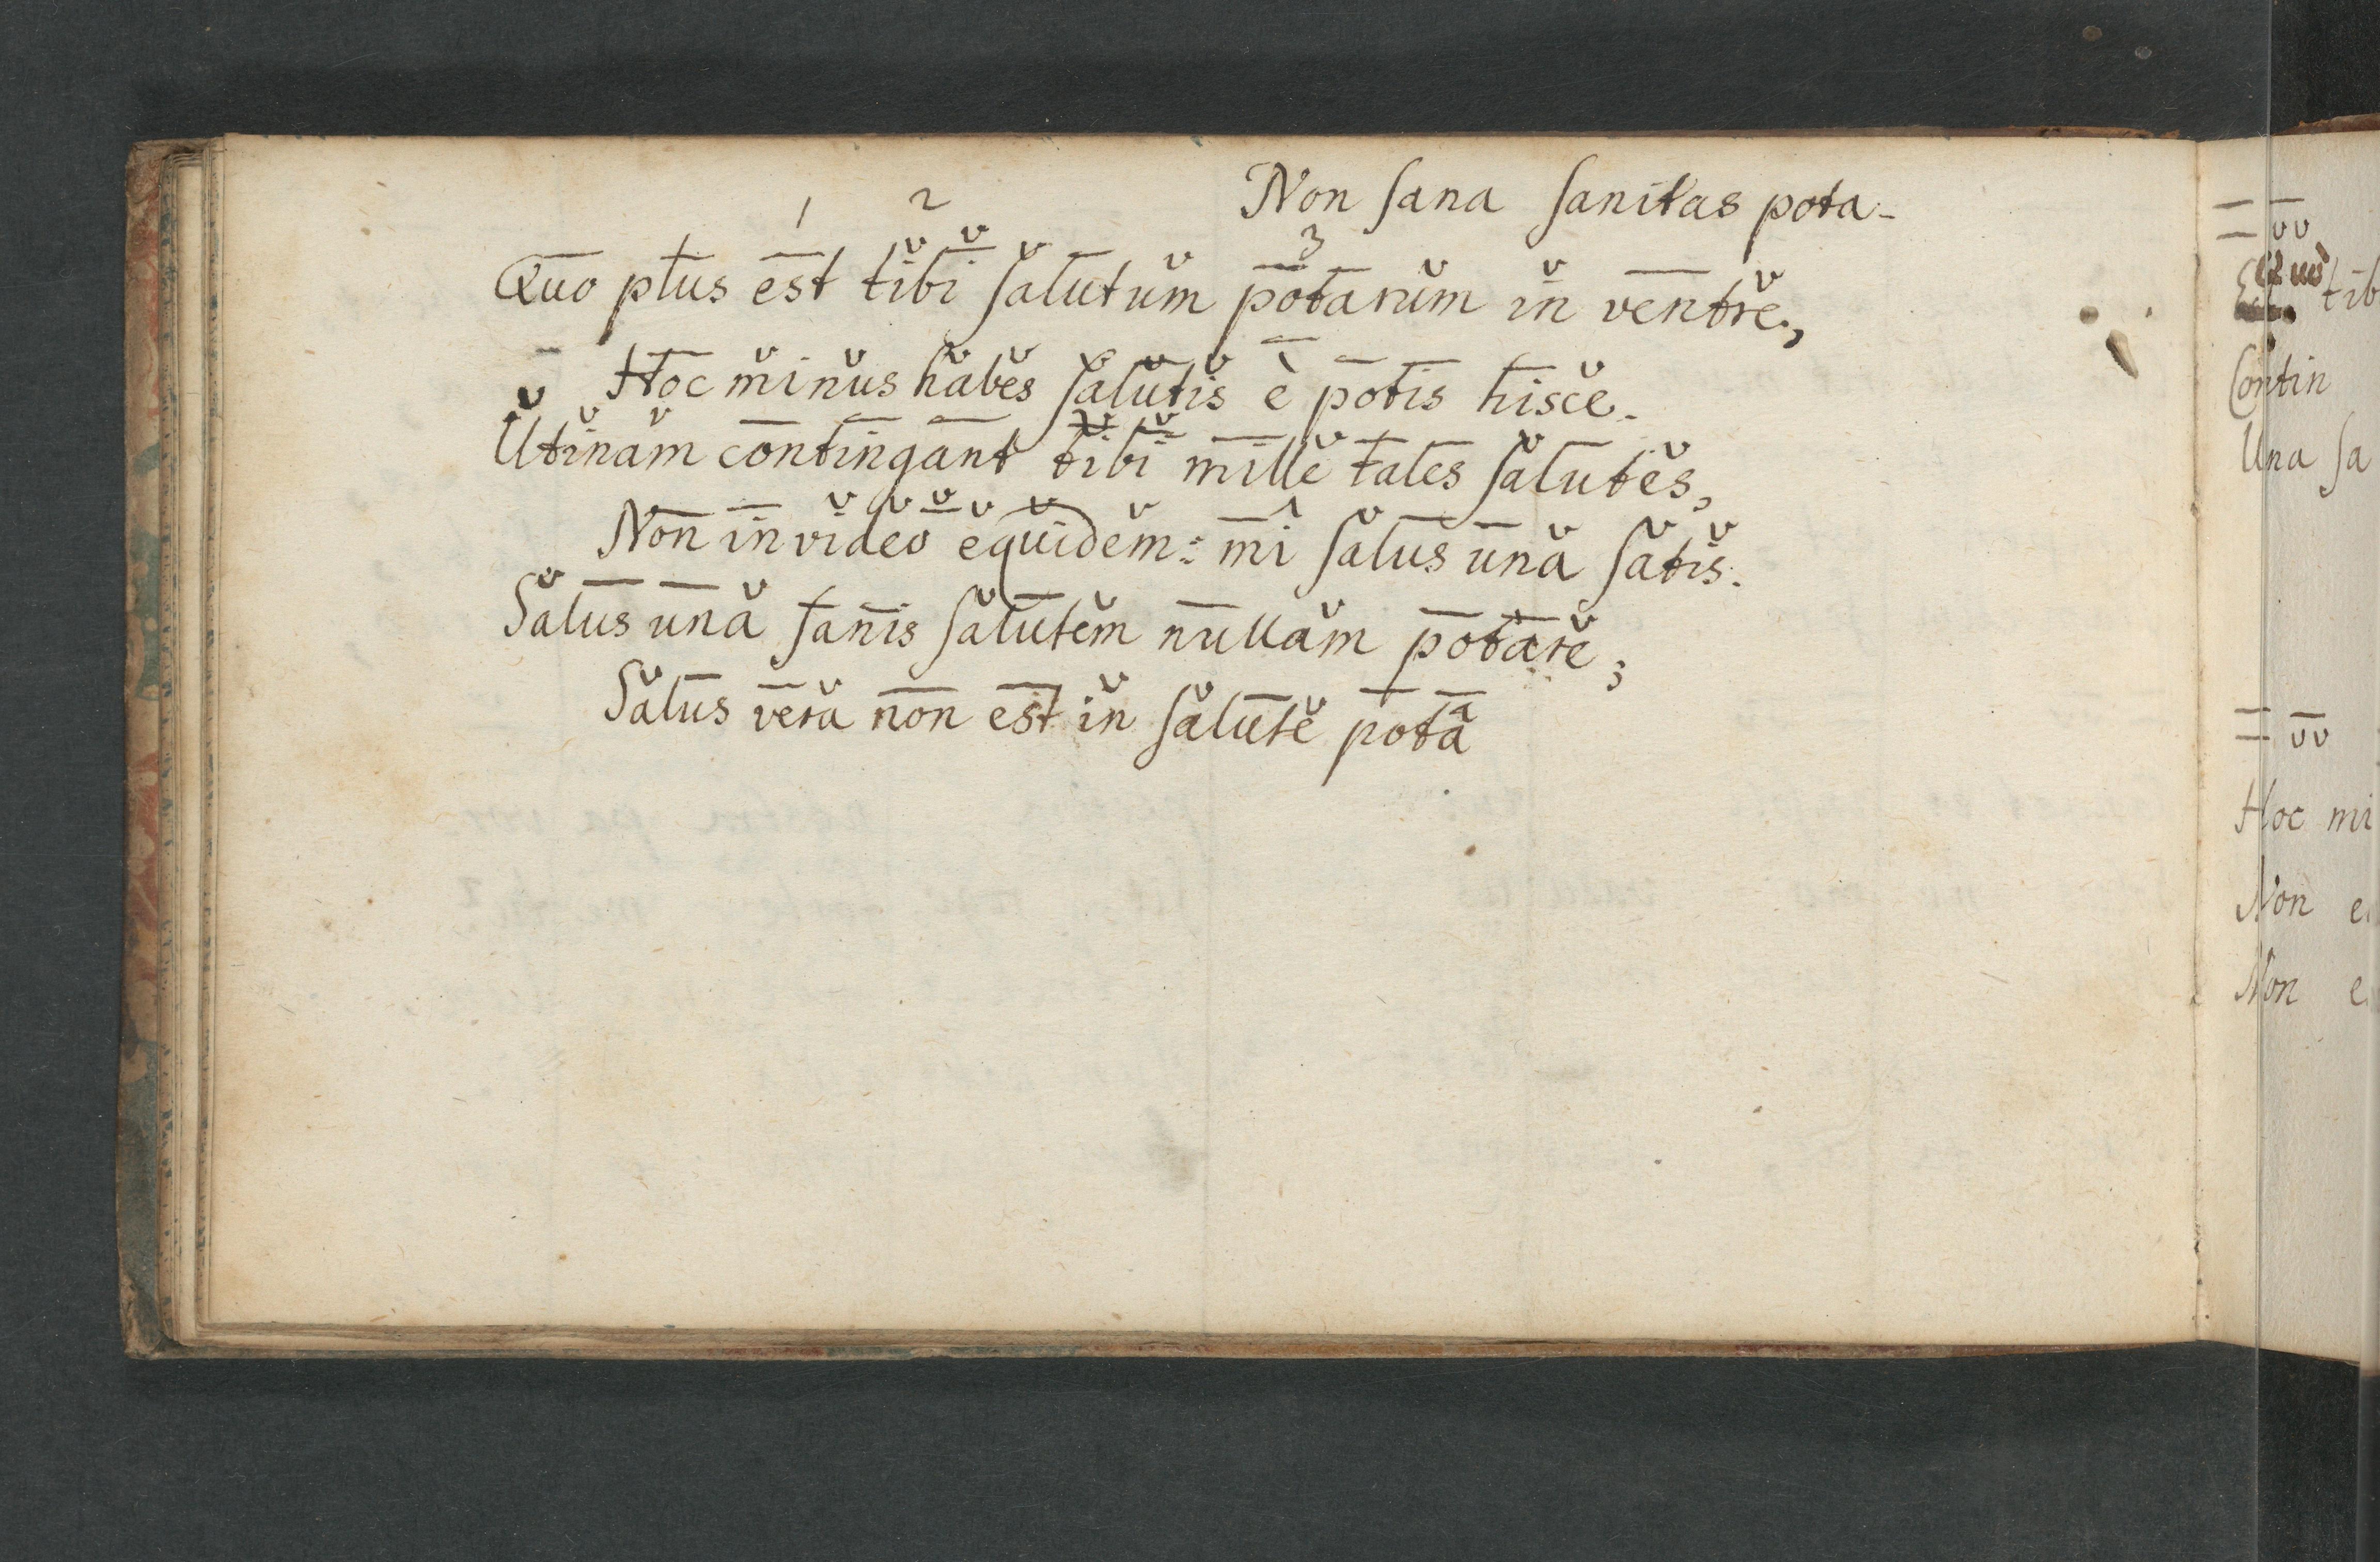 Non ſana ſanitas pota-
1 2 3
Quo plus est tibi ſalutum potarum in ventre,
Hoc minus habes ſalutis è potis hisce.
Utinam contingant tibi mille tales ſalutes,
Non invideo equidem: mî ſalus una ſatis.
Salus una ſanis ſalutem nullam potare;
Salus vera non est in ſalute potâ
tib
Contin
Una ſa
Hoc mi
Non e
Non e